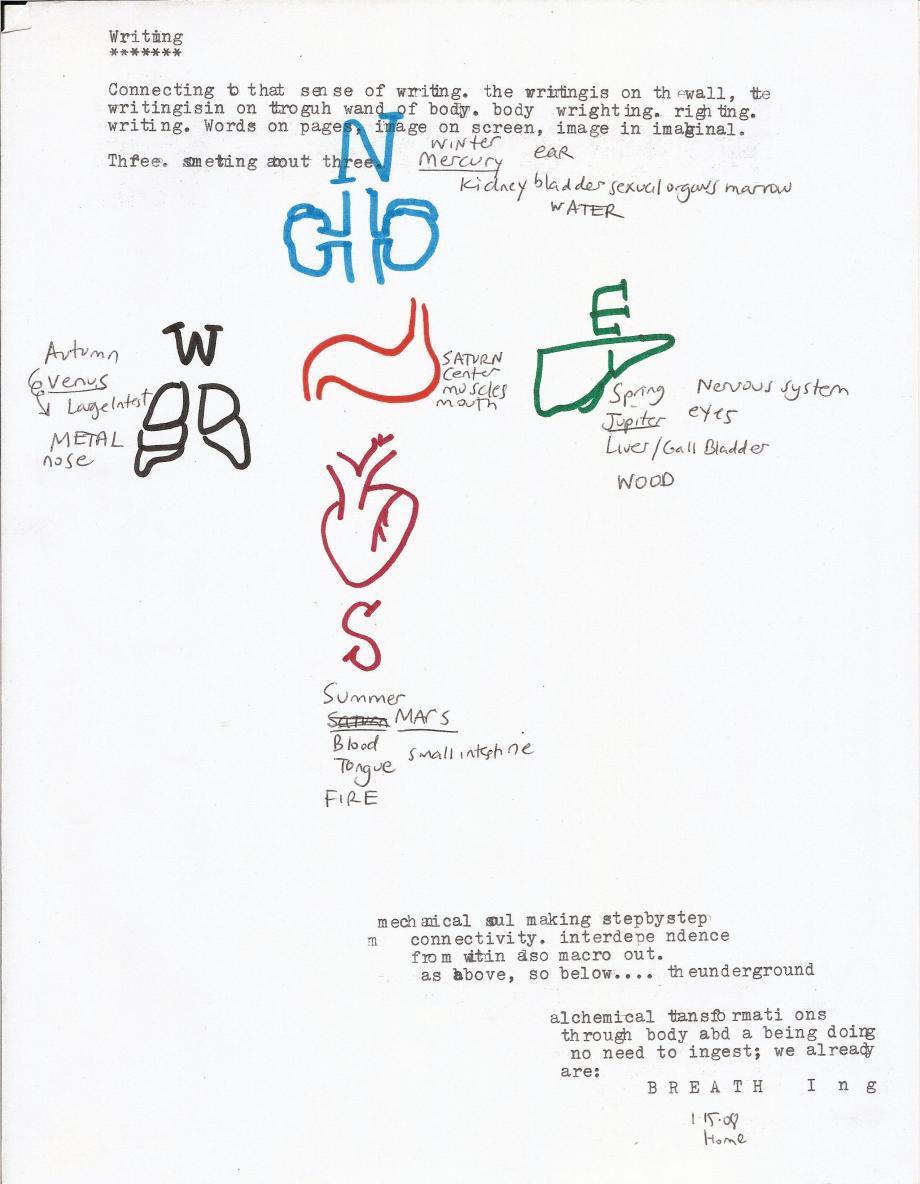 Writing
*******
Connecting to that sense of writing. the writingis on the wall, the
writingisin on troguh wand of body. body wrighting. righting.
writing. Words on pages, image on screen, image in imaginal.
Three. smeting about three.
N
Winter
Mercury ear
Kidney bladder sexual organs marrow
WATER
W
Autumn
Venus
Large Intest
METAL
nose
SATURN
Center
muscles
mouth
E
Spring Nervous system
Jupiter eyes
Liver/Gall Bladder
WOOD
S
Summer
Saturn MARS
Blood small intestine
Tongue
FIRE
mechanical sul making stepbystep
m connectivity. interdepe ndence
from witin also macro out.
as above, so below.... theunderground
alchemical transfo rmati ons
through body abd a being doing
no need to ingest; we already
are:
B R E A T H I n g
1·15·08
Home